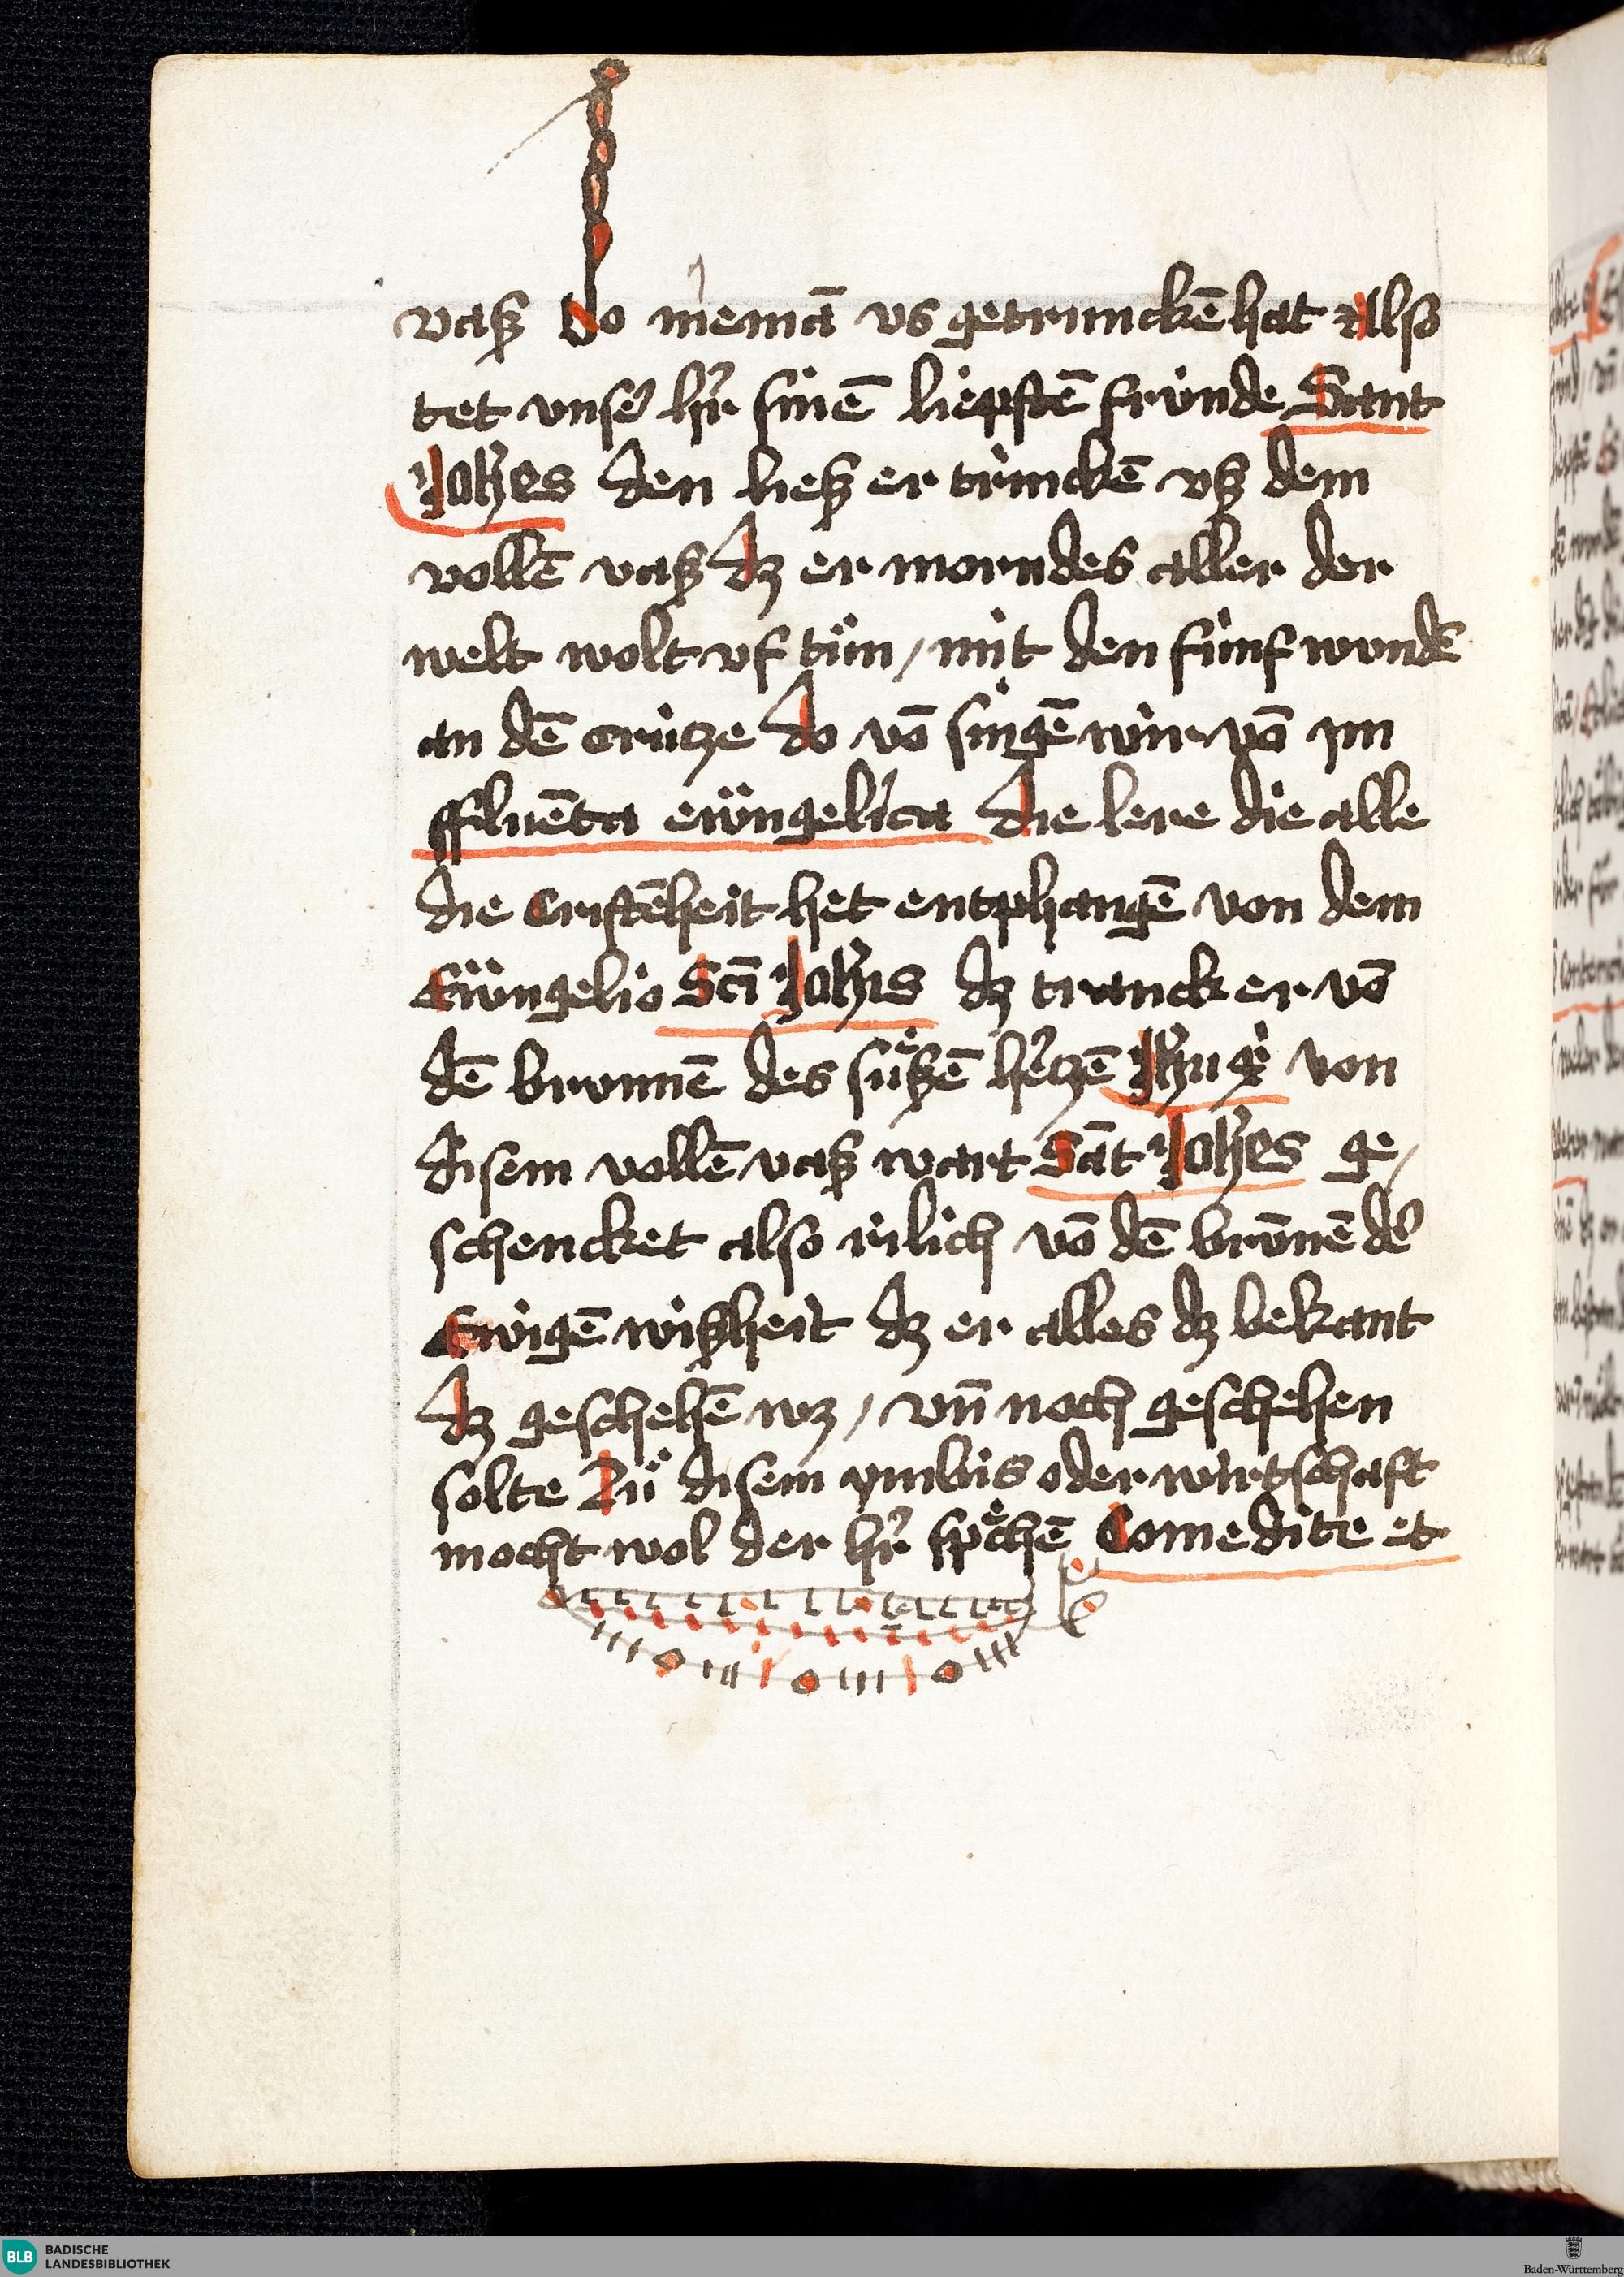 vaß do niemā vs getrunckē hat also
tet vnser hr̄ sinē liepstē fründe Sant
Johēs den ließ er trincken vß dem
vollē vaß dz er morndes aller der
welt wolt vf tůn / mit den fünf wundē
an dē crütze do vō singē wir vō im
ffluēta ewāngelica die lere die alle
die Cristēheit het entphangē von dem
Ewāngelio Scī Johīs dz tranck er vō
dē brunnē des süßē hertzē Jhū xp̄i von
disem vollē vaß wart Sāt Johēs ge/
schencket also rilich vō dē brūnē der
Ewigē wißheit dz er alles dz bekant
dz geschehē wz / vn̄ noch geschehen
solte Zů disem ymbis oder wirtschaft
mocht wol der hr̄ sp̄chē Comedite et
BLB BADISCHE
LANDESBIBLIOTHEK
Baden-Württemberg